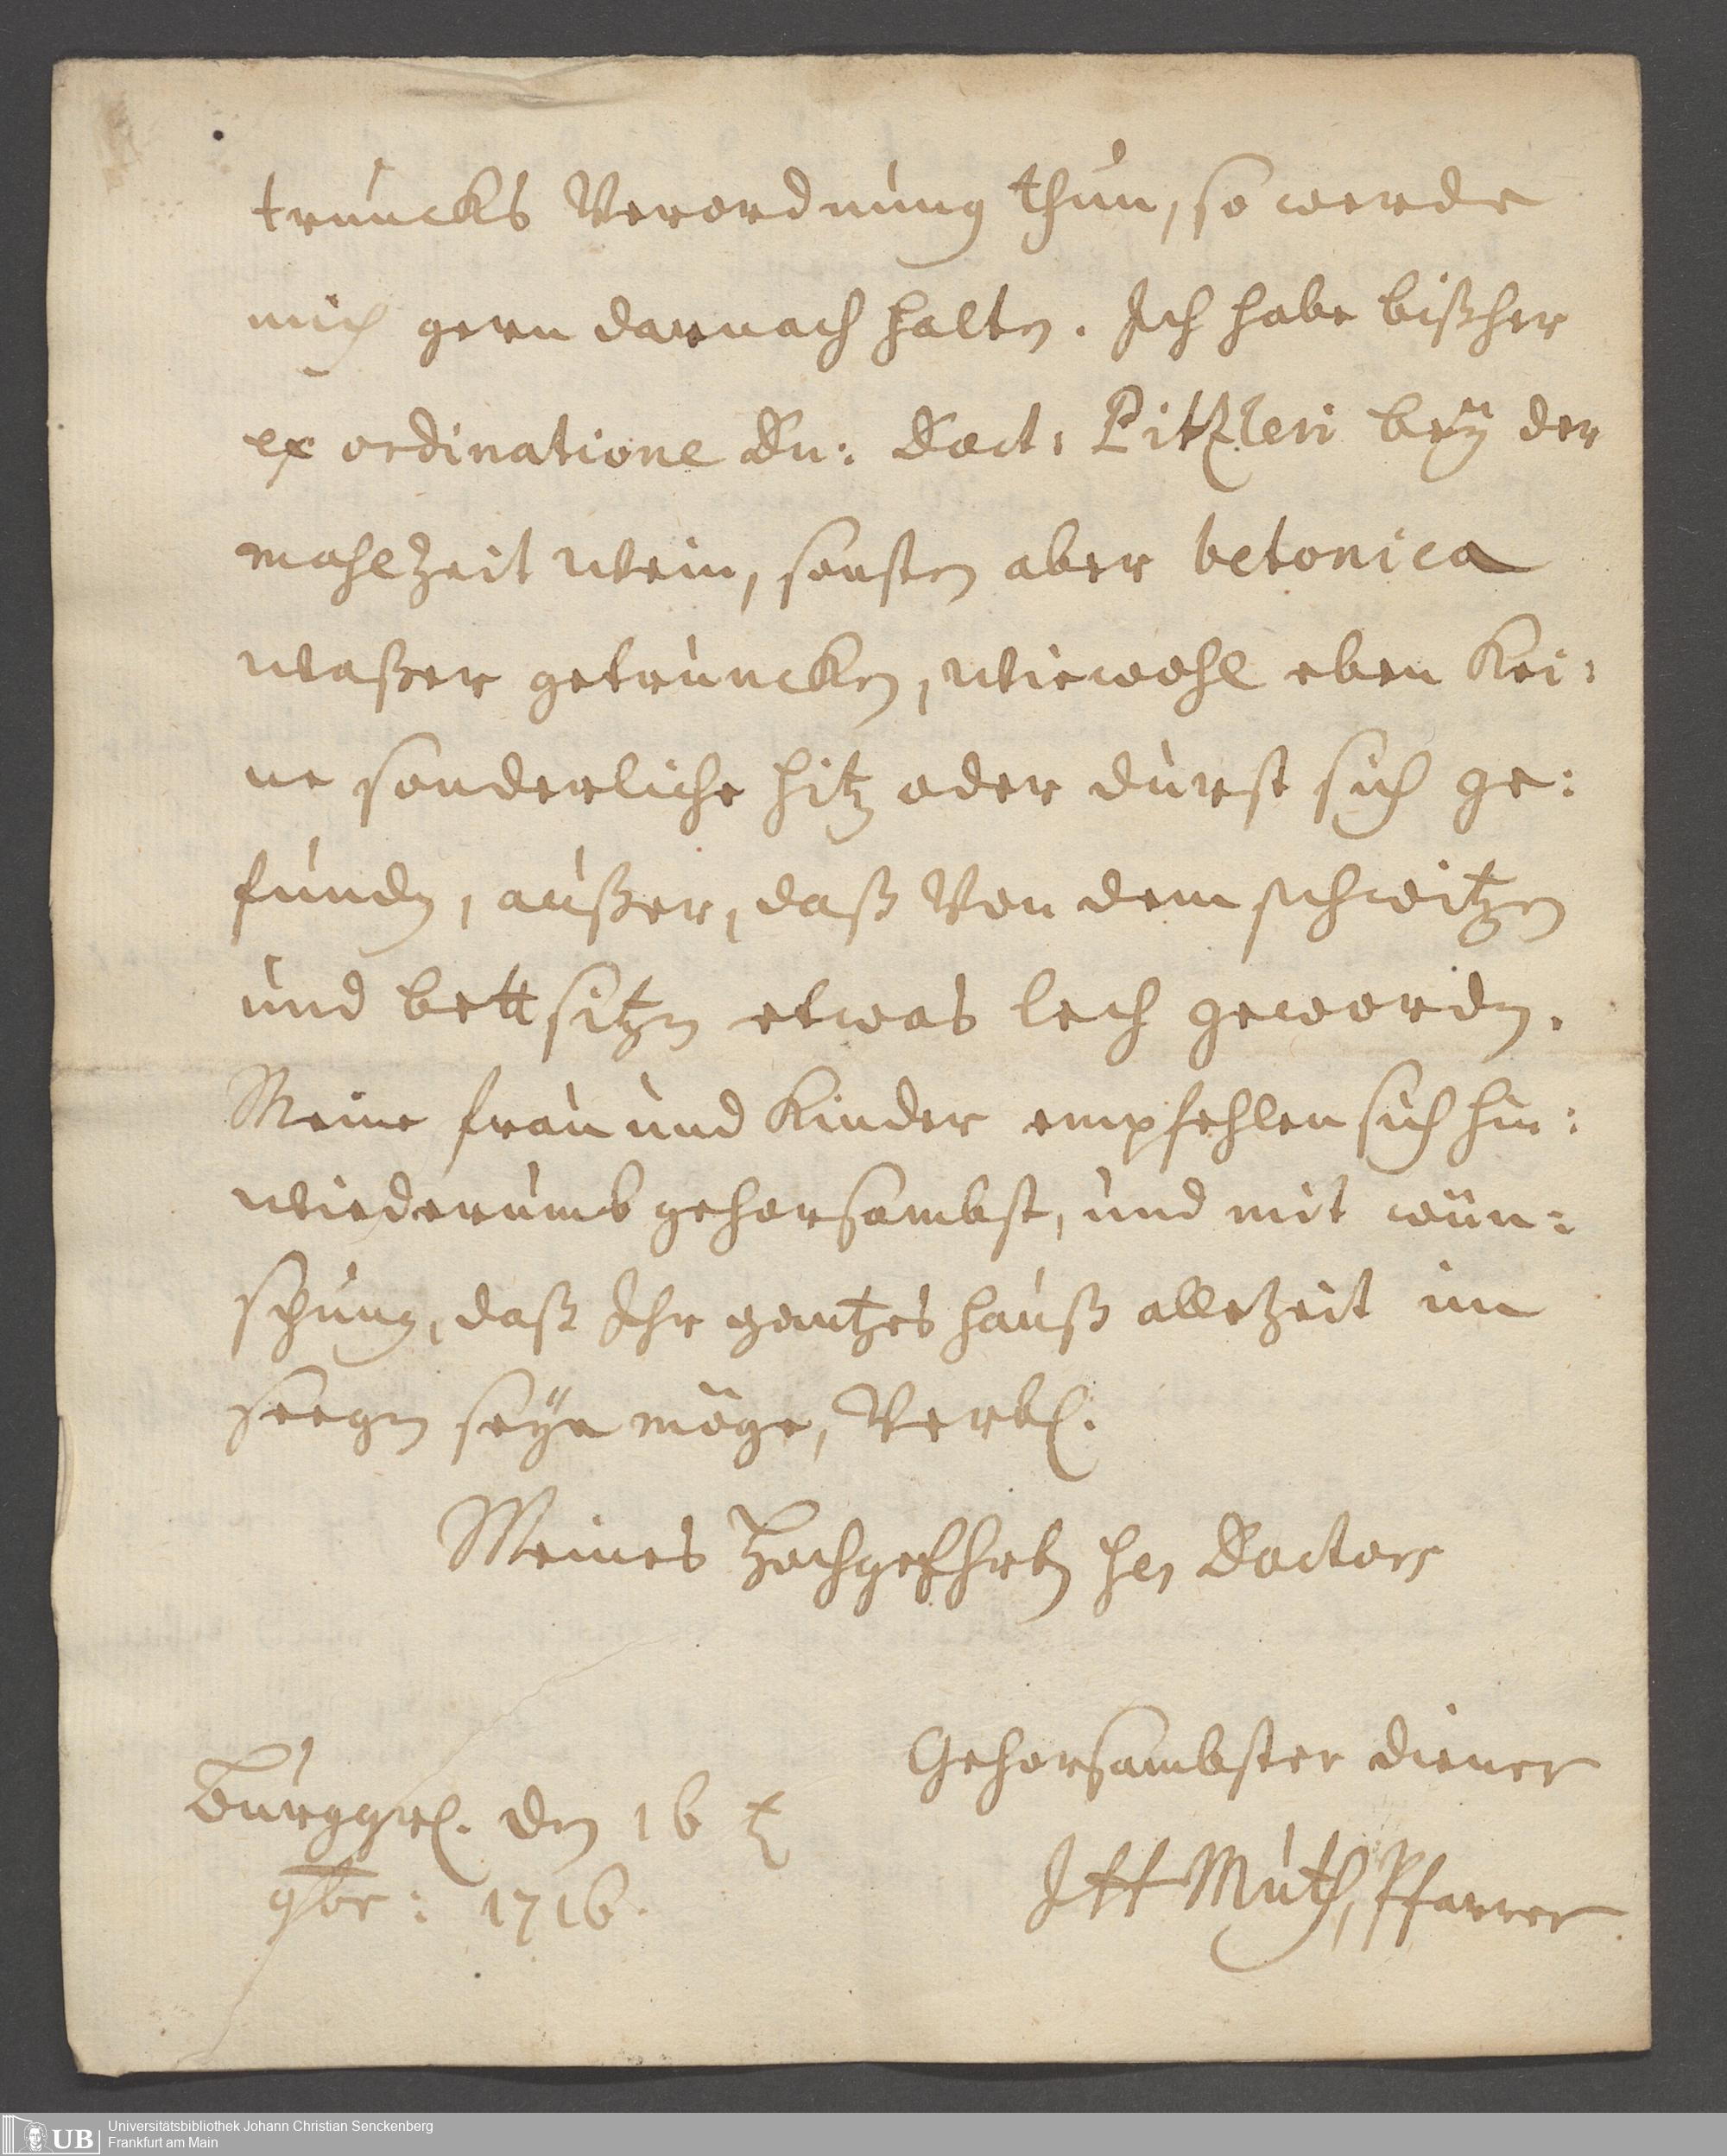 truncks Verordnung thun, so werde
mich gern darnach halten. Ich habe bißher
ex ordinatione Dn: Doct: Pitzleri bey der
mahlzeit Wein, sonsten aber betonica
Waßer getruncken, Wiewohl eben kei:
ne sonderliche hitz oder durst sich ge:
funden, außer, daß Von dem schwitzen
und bettsitzen etwas lech geworden.
Meine frau und Kinder empfehlen sich hin:
wiederumb gehorsambst, und mit wün:
schung, daß Ihr gantzes hauß allezeit im
seegen seyn möge, Verbl.
Meines Hochgeehrten hen Doctors
Gehorsambster diener
Burggrl. den 16 t
9br: 1716.
Muth, Pfarrer
Universitätsbibliothek Johann Christian Senckenberg
Frankfurt am Main
UB